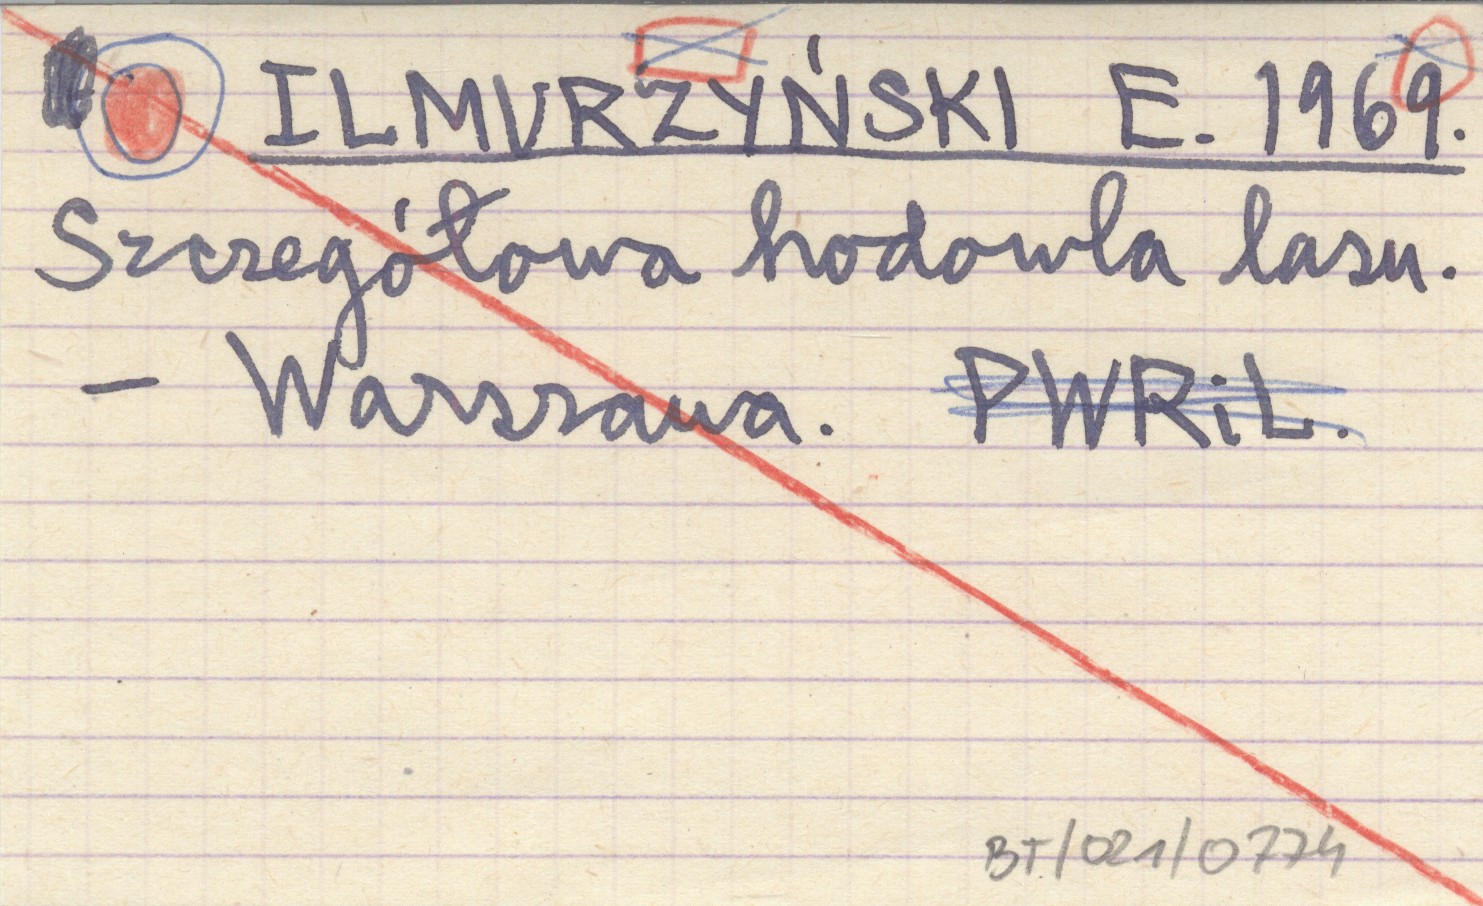 ILMURZYŃSKI E. 1969.
Szczegółowa hodowla lasu.
– Warszawa. PWRiL.
BT/021/0774